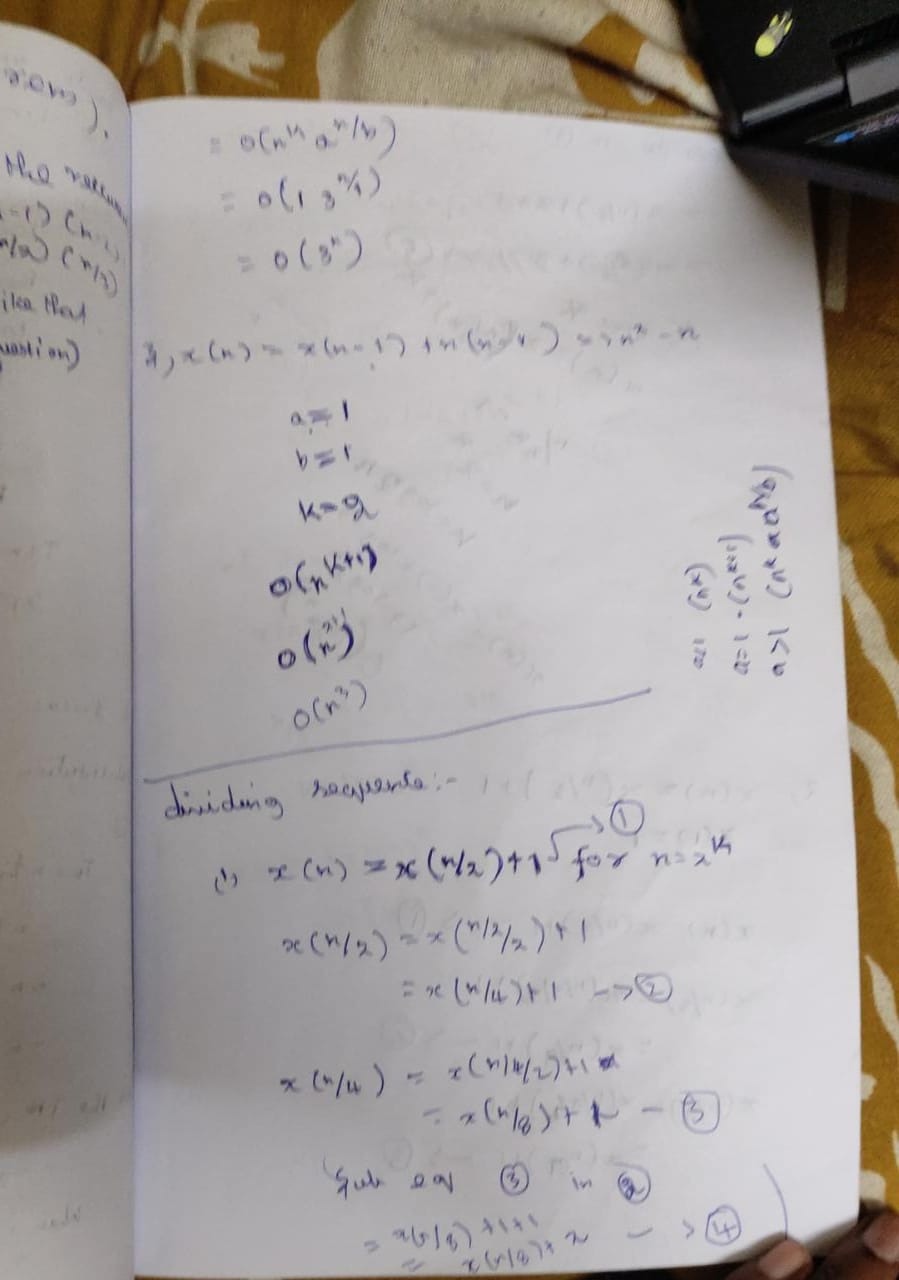 the recu
ike that
uestion)
= O(n^k a^n/b)
= O(1 3^n/1)
= O(3^n)
x(n) = x(n-1) + n(n-1) => n² - n
a = 1
b = 1
k = 2
O(n^k+1)
O(n^2+1)
O(n³)
a<1 (n^k)
a=1 - (n^k+1)
a>1 (n^k a^n/b)
dividing :-
(1) x(n) = x(n/2)+1 for n=2^k → ①
x(n/2) = x(n/2/2)+1
= x(n/4)+1 -> ②
x(n/4) = x(n/4/2)+1
= x(n/8)+1 - ③
Sub eq ③ in ②
= x(n/8)+1+1
= x(n/8)+2 -> ④